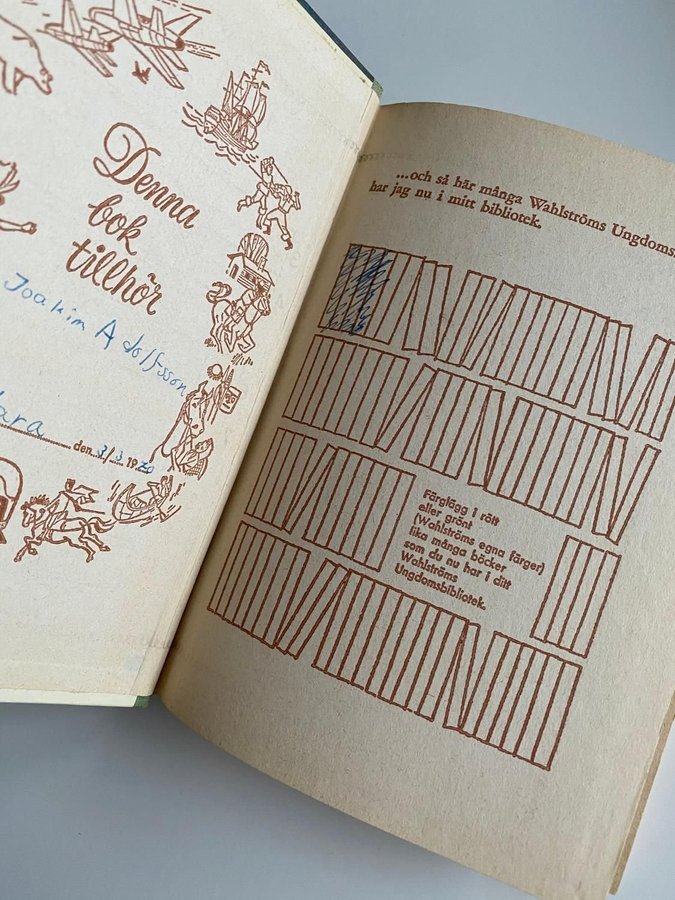 Denna
bok
tillhör
Joakim Adolfsson
den 3/3 1970
...och så här många Wahlströms Ungdoms
har jag nu i mitt bibliotek.
Färglägg i rött
eller grönt
(Wahlströms egna färger)
lika många böcker
som du nu har i ditt
Wahlströms
Ungdomsbibliotek.